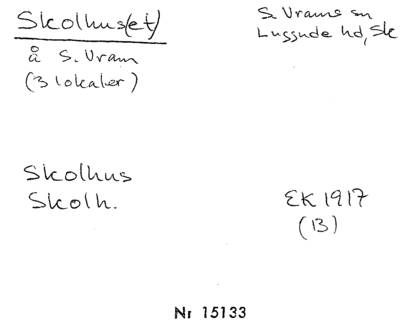 Skolhus(et)
å S. Vram
(3 lokaler)
S. Vrams sn
Luggude hd, Sk
Skolhus
Skolh.
EK 1917
(B)
Nr 15133